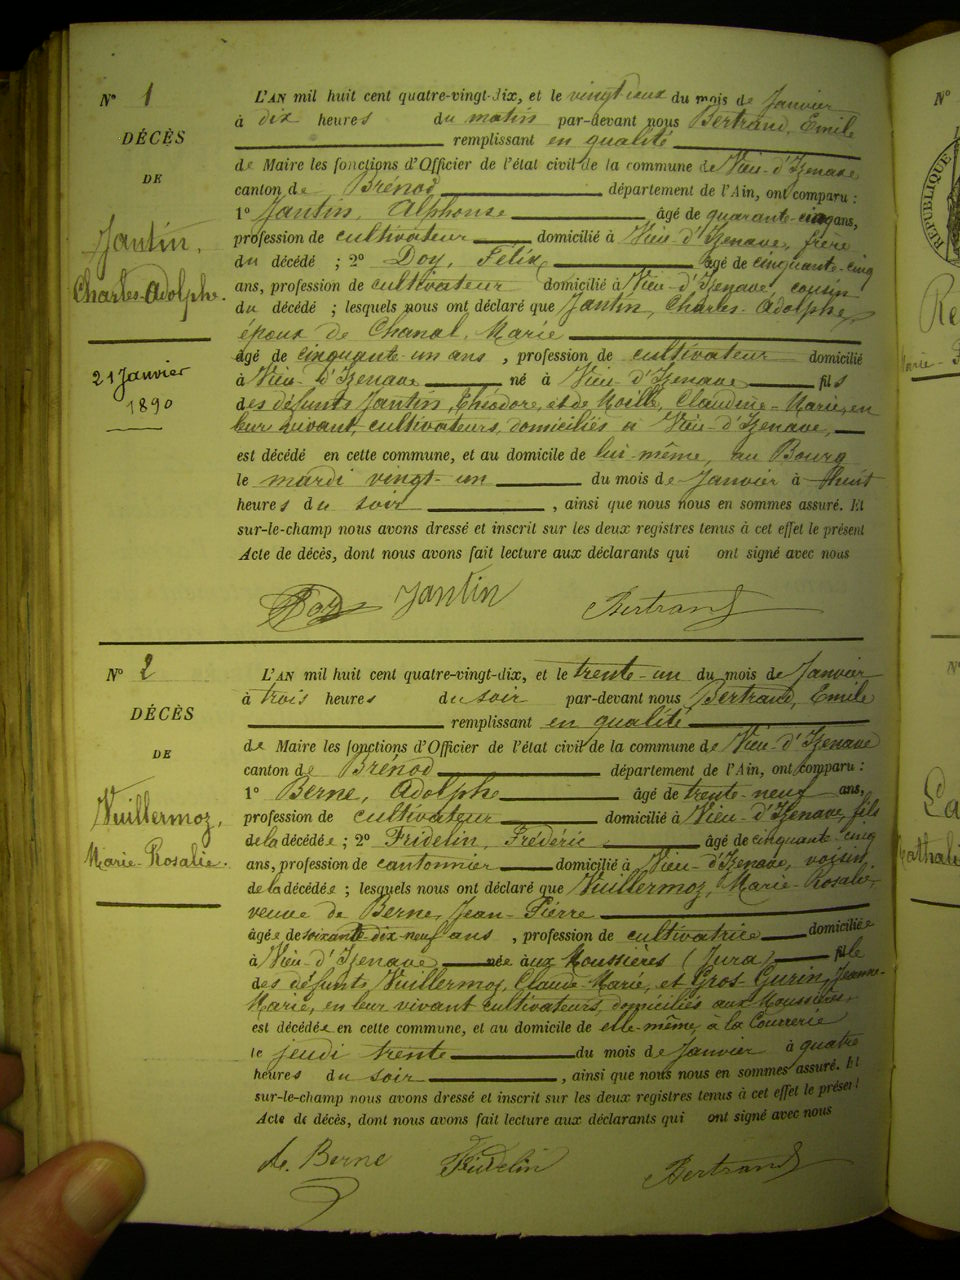 N° 1
DÉCÈS
DE
Jantin,
Charles-Adolphe.
21 Janvier
1890
L'AN mil huit cent quatre-vingt-dix, et le vingt deux du mois de Janvier
à dix heures du matin par-devant nous Bertrand, Emile
remplissant en qualité
de Maire les fonctions d'Officier de l'état civil de la commune de Vieu-d'Izenave
canton de Brénod département de l'Ain, ont comparu :
1° Jantin, Alphonse âgé de quarante-cinq ans,
profession de cultivateur domicilié à Vieu-d'Izenave, frère
du décédé ; 2° Doy, Félix, âgé de cinquante-cinq
ans, profession de cultivateur domicilié à Vieu-d'Izenave, cousin
du décédé ; lesquels nous ont déclaré que Jantin, Charles-Adolphe,
époux de Chanal, Marie
âgé de cinquante-un ans , profession de cultivateur domicilié
à Vieu-d'Izenave né à Vieu-d'Izenave fils
des défunts Jantin, Théodore, et de Claudine-Marie, en
leur vivant, cultivateurs, domiciliés à Vieu-d'Izenave,
est décédé en cette commune, et au domicile de lui-même, au Bourg
le mardi vingt-un du mois de Janvier à huit
heures du soir , ainsi que nous nous en sommes assuré. Et
sur-le-champ nous avons dressé et inscrit sur les deux registres tenus à cet effet le présent
Acte de décès, dont nous avons fait lecture aux déclarants qui ont signé avec nous
Doy Jantin Bertrand
N° 2
DÉCÈS
DE
Vuillermoz,
Marie-Rosalie.
L'AN mil huit cent quatre-vingt-dix, et le trente-un du mois de Janvier
à trois heures du soir par-devant nous Bertrand, Emile
remplissant en qualité
de Maire les fonctions d'Officier de l'état civil de la commune de Vieu-d'Izenave
canton de Brénod département de l'Ain, ont comparu :
1° Berne, Adolphe âgé de trente-neuf ans,
profession de cultivateur domicilié à Vieu-d'Izenave, fils
de la décédée ; 2° Fridelin, Frédéric âgé de cinquante-cinq
ans, profession de cantonnier domicilié à Vieu-d'Izenave, voisin,
de la décédée ; lesquels nous ont déclaré que Vuillermoz, Marie-Rosalie,
veuve de Berne, Jean-Pierre
âgée de soixante-dix-neuf ans , profession de cultivatrice domiciliée
à Vieu-d'Izenave née aux Moussières (Jura) fille
des défunts Vuillermoz, Claude-Marie, et Gros-Gurin, Jeanne-
Marie, en leur vivant cultivateurs, domiciliés aux Moussières,
est décédée en cette commune, et au domicile de elle-même, à la Couverie
le jeudi trente du mois de Janvier à quatre
heures du soir , ainsi que nous nous en sommes assuré. Et
sur-le-champ nous avons dressé et inscrit sur les deux registres tenus à cet effet le présent
Acte de décès, dont nous avons fait lecture aux déclarants qui ont signé avec nous
A. Berne Fridelin Bertrand
N°
RÉPUBLIQUE